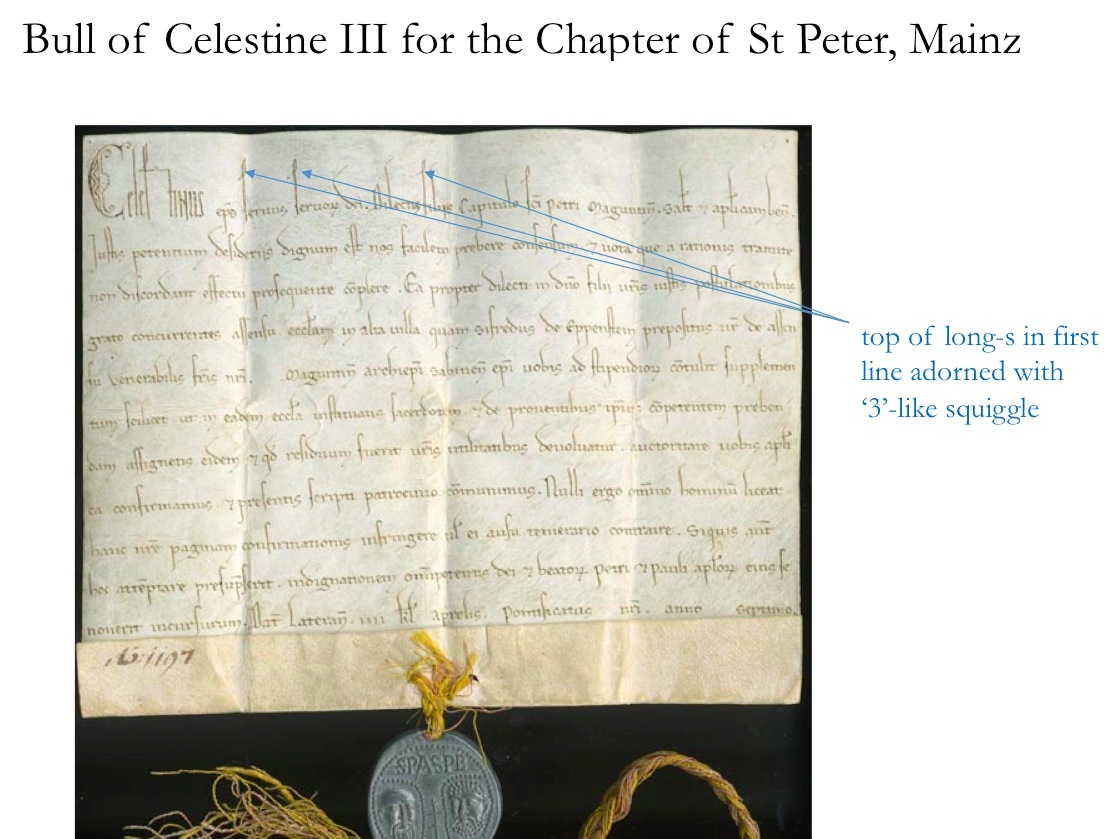 Bull of Celestine III for the Chapter of St Peter, Mainz
Celestinus ep̄s seruus seruoꝝ dei. Dilectis filiis Capitulo sc̄i petri Maguntin̄. Salt̄ ⁊ aplicam ben̄.
Justis petentium desideriis dignum est nos facilem prebere consensum. ⁊ uota que a rationis tramite
non discordant effectu prosequente cōplere. Ea propter dilecti in dn̄o filii ur̄is iustis postulationibus
grato concurrentes assensu. eccłam in alta uilla quam Sifredus de Eppenstein prepositus ur̄ de assen
su Venerabilis fr̄is nr̄i. Maguntin̄ archiep̄i Sabinen̄ ep̄i uobis ad stipendioꝝ cōtulit supplemen
tum scilicet ut in eadem eccła instituatis sacerdotem. ⁊ de prouentibus ipius cōpetentem preben
dam assignetis eidem ⁊ qd̄ residuum fuerit ur̄is utilitatibus deuoluatur. auctoritate uobis apłi
ca confirmamus. ⁊ presentis scripti patrocinio cōmunimus. Nulli ergo om̄ino hominū liceat
hanc nr̄e paginam confirmationis infringere ul̄ ei ausu temerario contraire. Siquis aut̄
hoc attēptare presūpserit. indignationem om̄ipotentis dei ⁊ beatoꝝ petri ⁊ pauli apłoꝝ eius se
nouerit incursurum. Dat̄ Lateran̄. iiii kl̄ aprelis. Pontificatus nr̄i. anno Septimo.
1197
SPASPE
top of long-s in first
line adorned with
‘3’-like squiggle